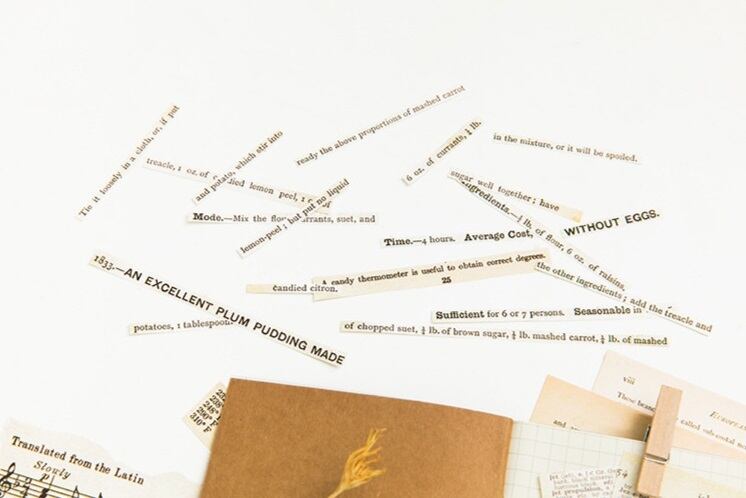 Tie it loosely in a cloth, or, if put
treacle, 1 oz. of candied lemon peel, 1
and potato, which stir into
ready the above proportions of mashed carrot
6 oz. of currants, ¼ lb.
in the mixture, or it will be spoiled.
Mode.—Mix the flour, currants, suet, and
lemon-peel; but put no liquid
sugar well together; have
Ingredients.—¼ lb. of flour, 6 oz. of raisins,
WITHOUT EGGS.
Time.—4 hours. Average Cost,
1833.—AN EXCELLENT PLUM PUDDING MADE
candied citron.
A candy thermometer is useful to obtain correct degrees.
25
the other ingredients; add the treacle and
Sufficient for 6 or 7 persons. Seasonable in
potatoes, 1 tablespoon
of chopped suet, ¼ lb. of brown sugar, ¼ lb. mashed carrot, ¼ lb. of mashed
290° F
310° F
viii
These
called sub-costal
and
Translated from the Latin
Slowly
p